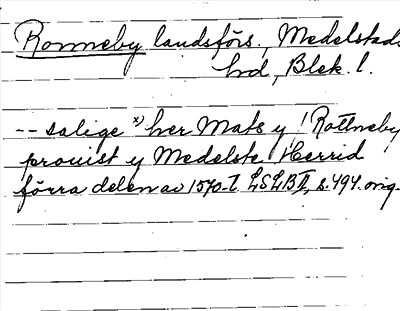 Ronneby landsförs., Medelstads
hd, Blek. l.
-- salige x) her Mats y ! Rottneby
prouist y Medelste Herrid
förra delen av 1570-t. LSLB II, s. 494. orig.